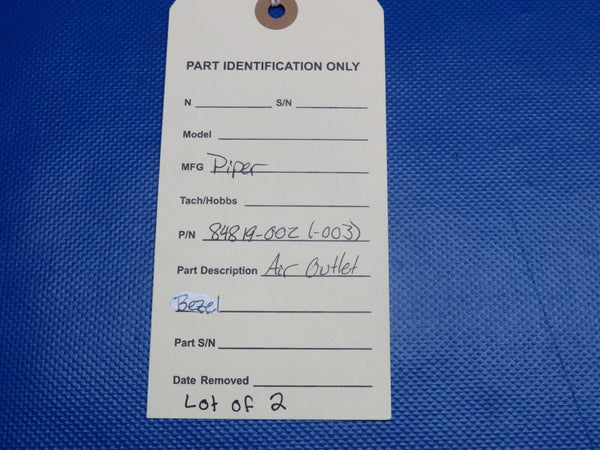 PART IDENTIFICATION ONLY
N S/N
Model
MFG Piper
Tach/Hobbs
P/N 84819-002 (-003)
Part Description Air Outlet
Bezel
Part S/N
Date Removed
Lot of 2